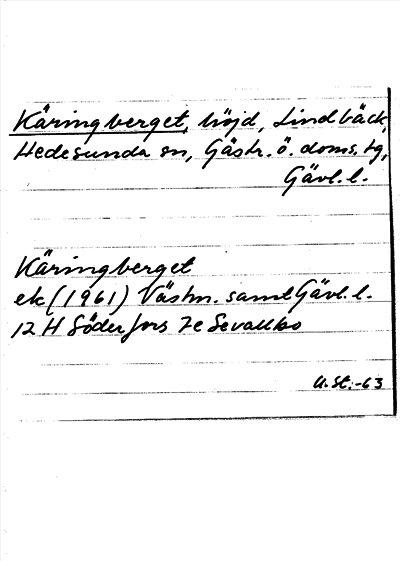 Käringberget, höjd, Lindbäck,
Hedesunda sn, Gästr. ö. doms. tg,
Gävl. l.
Käringberget
ek (1961) Västm. samt Gävl. l.
12 H Söderfors 7e Sevallbo
U. St. -63